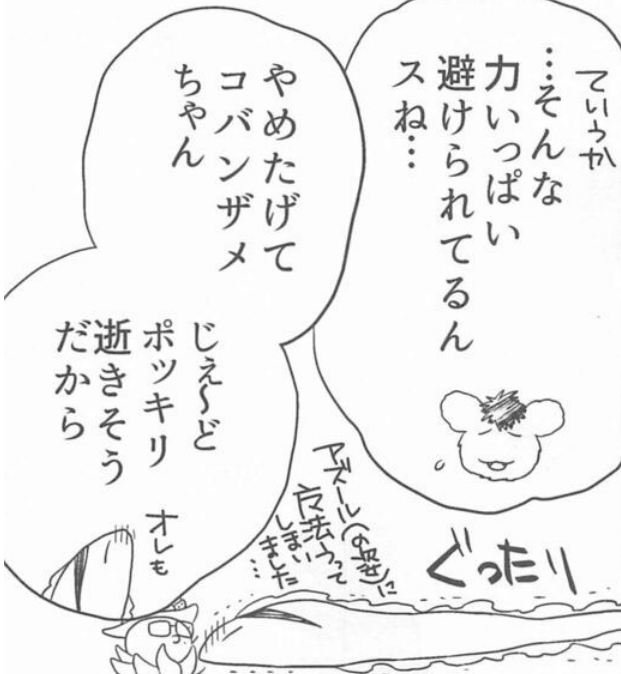 ていうか
…そんな
力いっぱい
避けられてるん
スね…
やめたげて
コバンザメ
ちゃん
じぇ〜ど
ポッキリ
逝きそう
だから
オレも
ぐったり
アズール(の足)に
魔法うって
しまい
ました
…